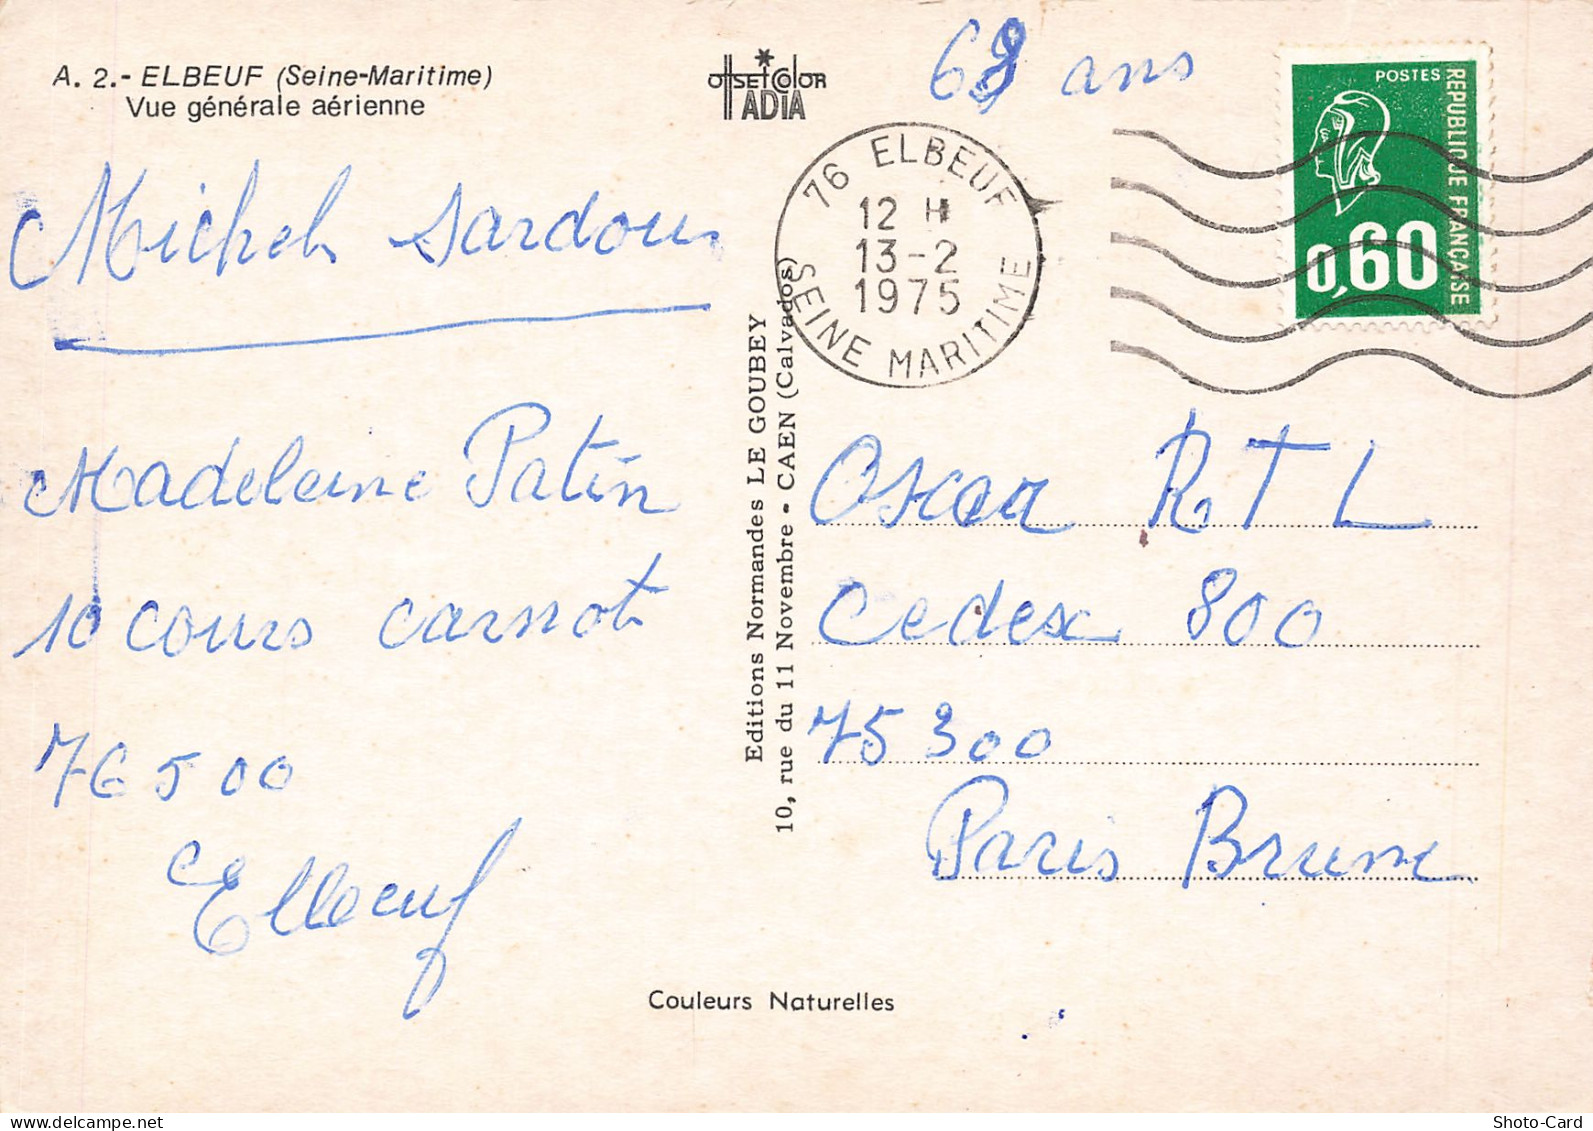 A. 2.- ELBEUF (Seine-Maritime)
Vue générale aérienne
offset color
ADIA
68 ans
POSTES
REPUBLIQUE FRANÇAISE
0,60
76 ELBEUF
12 H
13-2
1975
SEINE MARITIME
Michel Sardou
Madeleine Patin
10 cours carnot
76500
Elbeuf
Editions Normandes LE GOUBEY
10, rue du 11 Novembre - CAEN (Calvados)
Oscar RTL
Cedex 800
75300
Paris Brune
Couleurs Naturelles
Shoto-Card